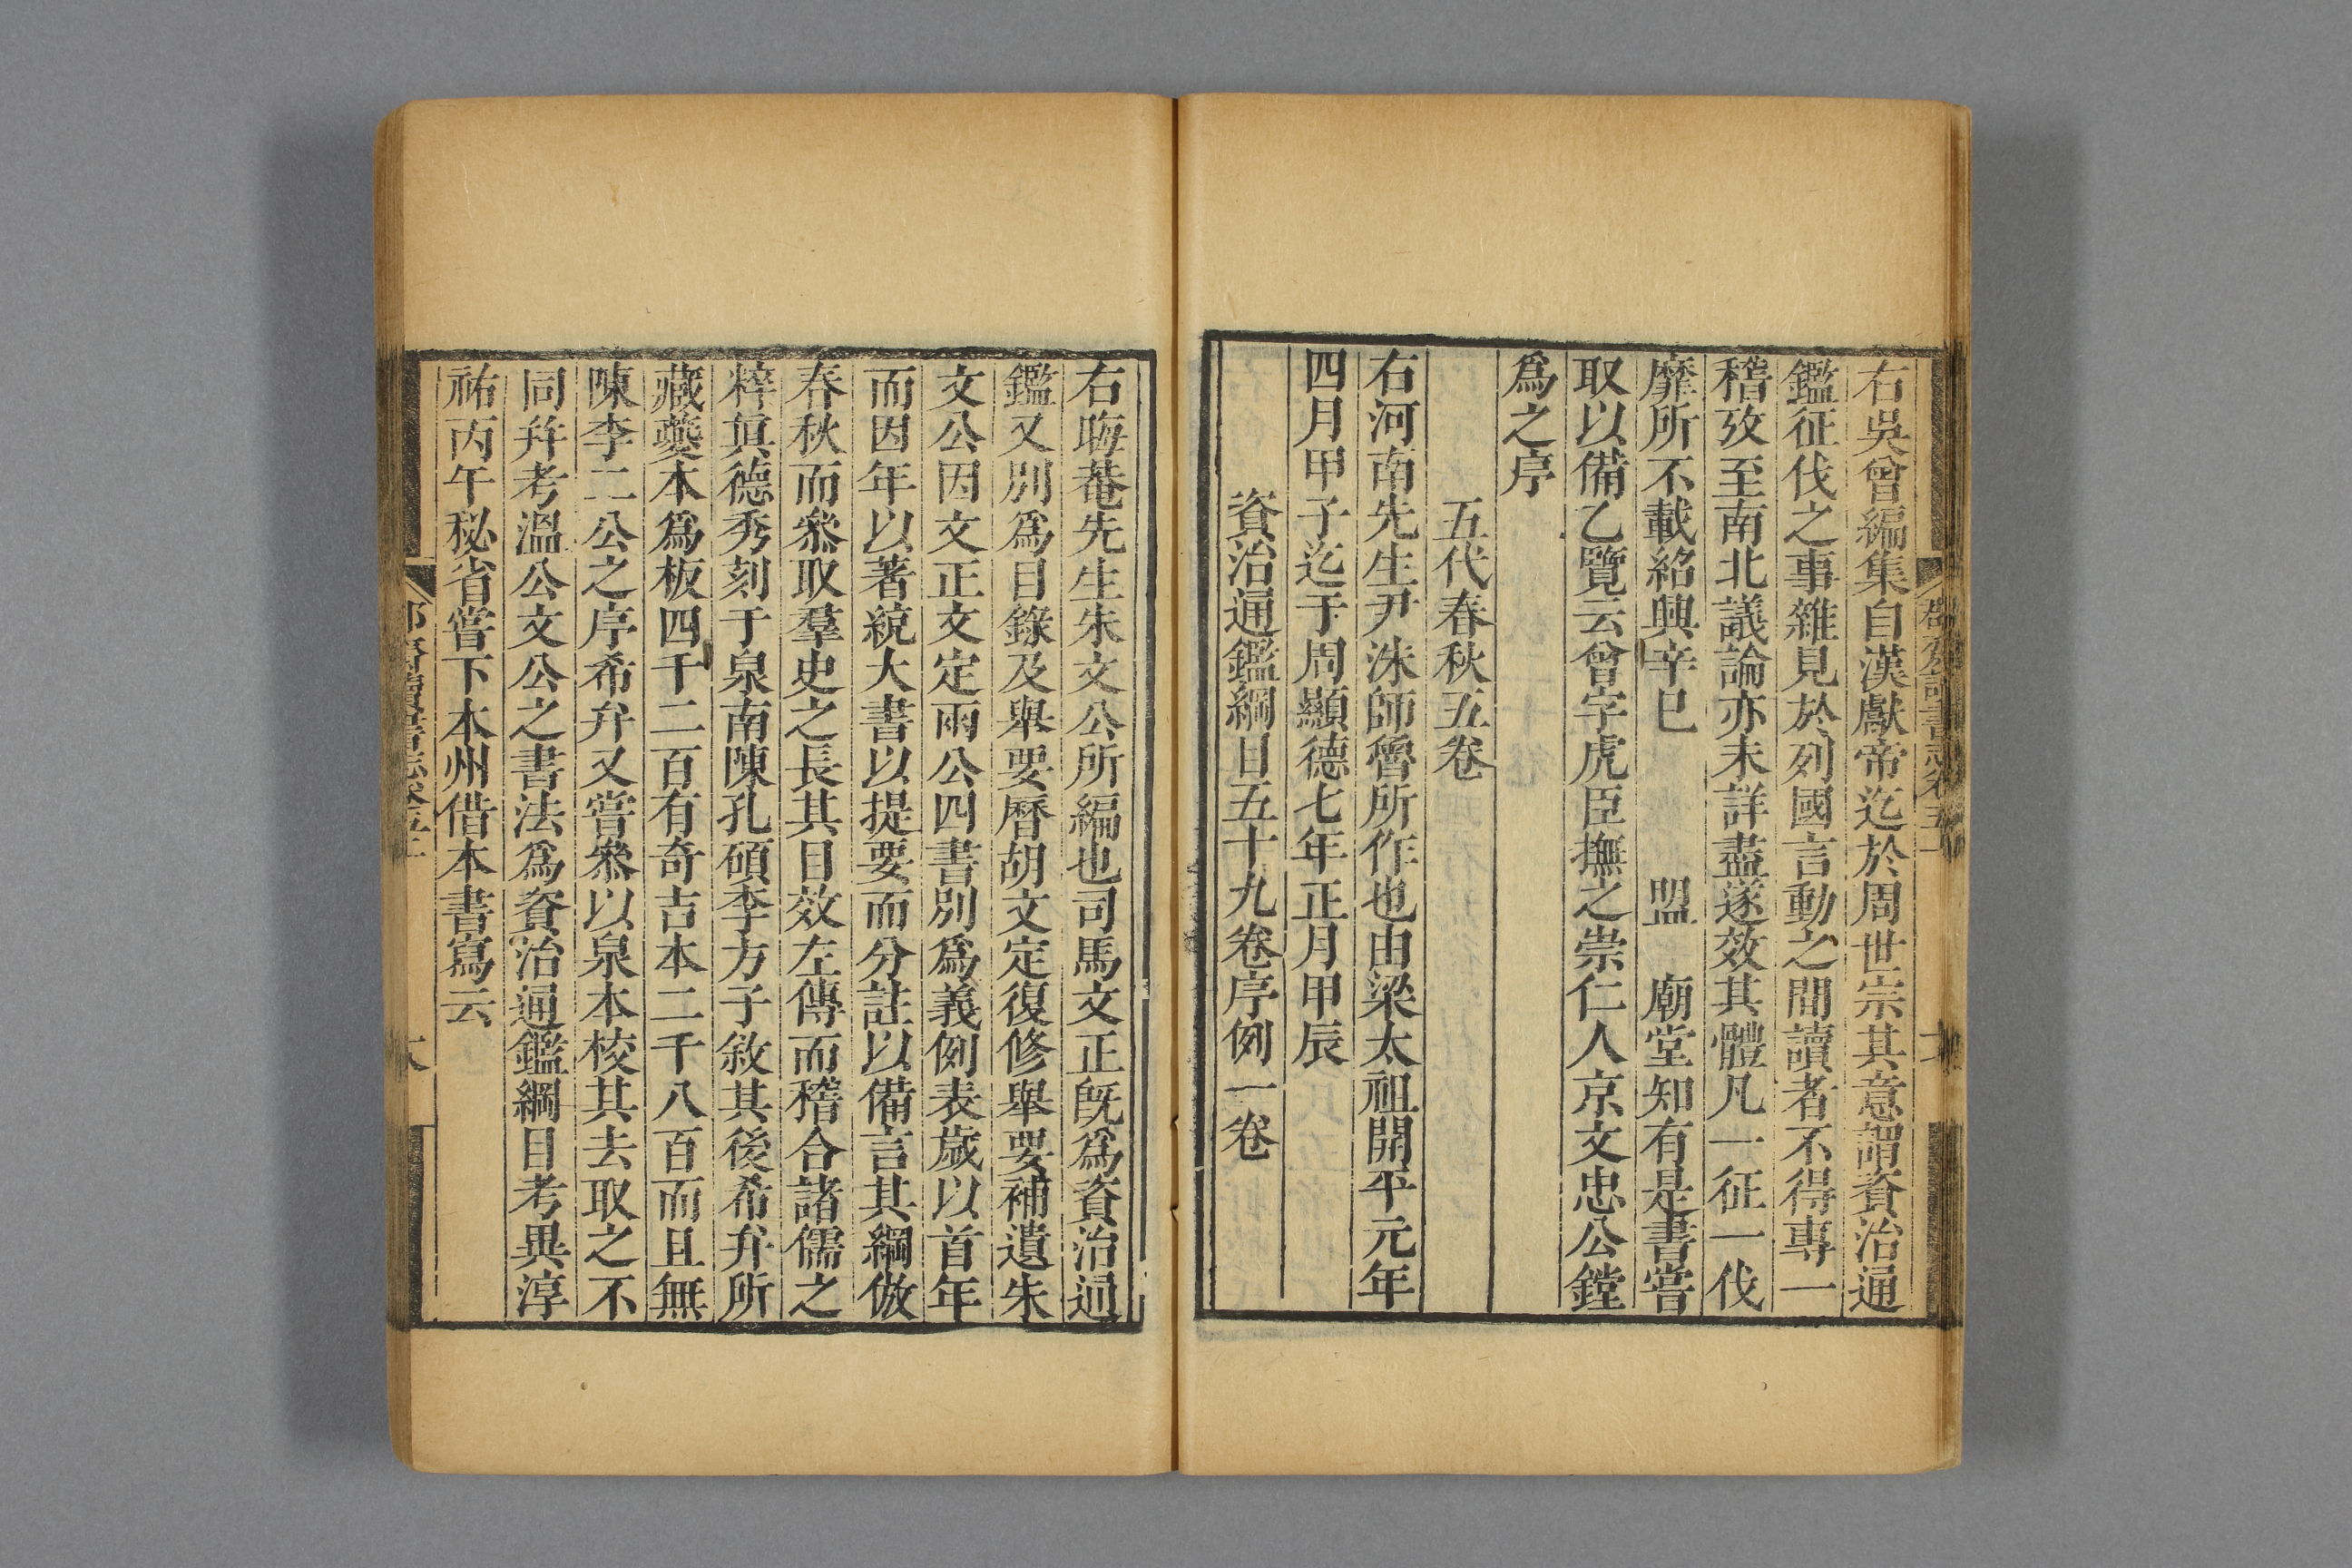 右吳曾編集自漢獻帝迄於周世宗其意謂資治通
鑑征伐之事雜見於列國言動之間讀者不得專一
稽攷至南北議論亦未詳盡遂效其體凡一征一伐
靡所不載紹興辛巳 盟 廟堂知有是書嘗
取以備乙覽云曾字虎臣撫之崇仁人京文忠公鏜
爲之序
五代春秋五卷
右河南先生尹洙師魯所作也由梁太祖開平元年
四月甲子迄于周顯德七年正月甲辰
資治通鑑綱目五十九卷序例一卷
右晦菴先生朱文公所編也司馬文正既爲資治通
鑑又別爲目錄及舉要曆胡文定復修舉要補遺朱
文公因文正文定兩公四書別爲義例表歲以首年
而因年以著統大書以提要而分註以備言其綱倣
春秋而叅取羣史之長其目效左傳而稽合諸儒之
粹眞德秀刻于泉南陳孔碩李方子敘其後希弁所
藏夔本爲板四千二百有奇吉本二千八百而且無
陳李二公之序希弁又嘗叅以泉本校其去取之不
同幷考溫公文公之書法爲資治通鑑綱目考異淳
祐丙午秘省嘗下本州借本書寫云